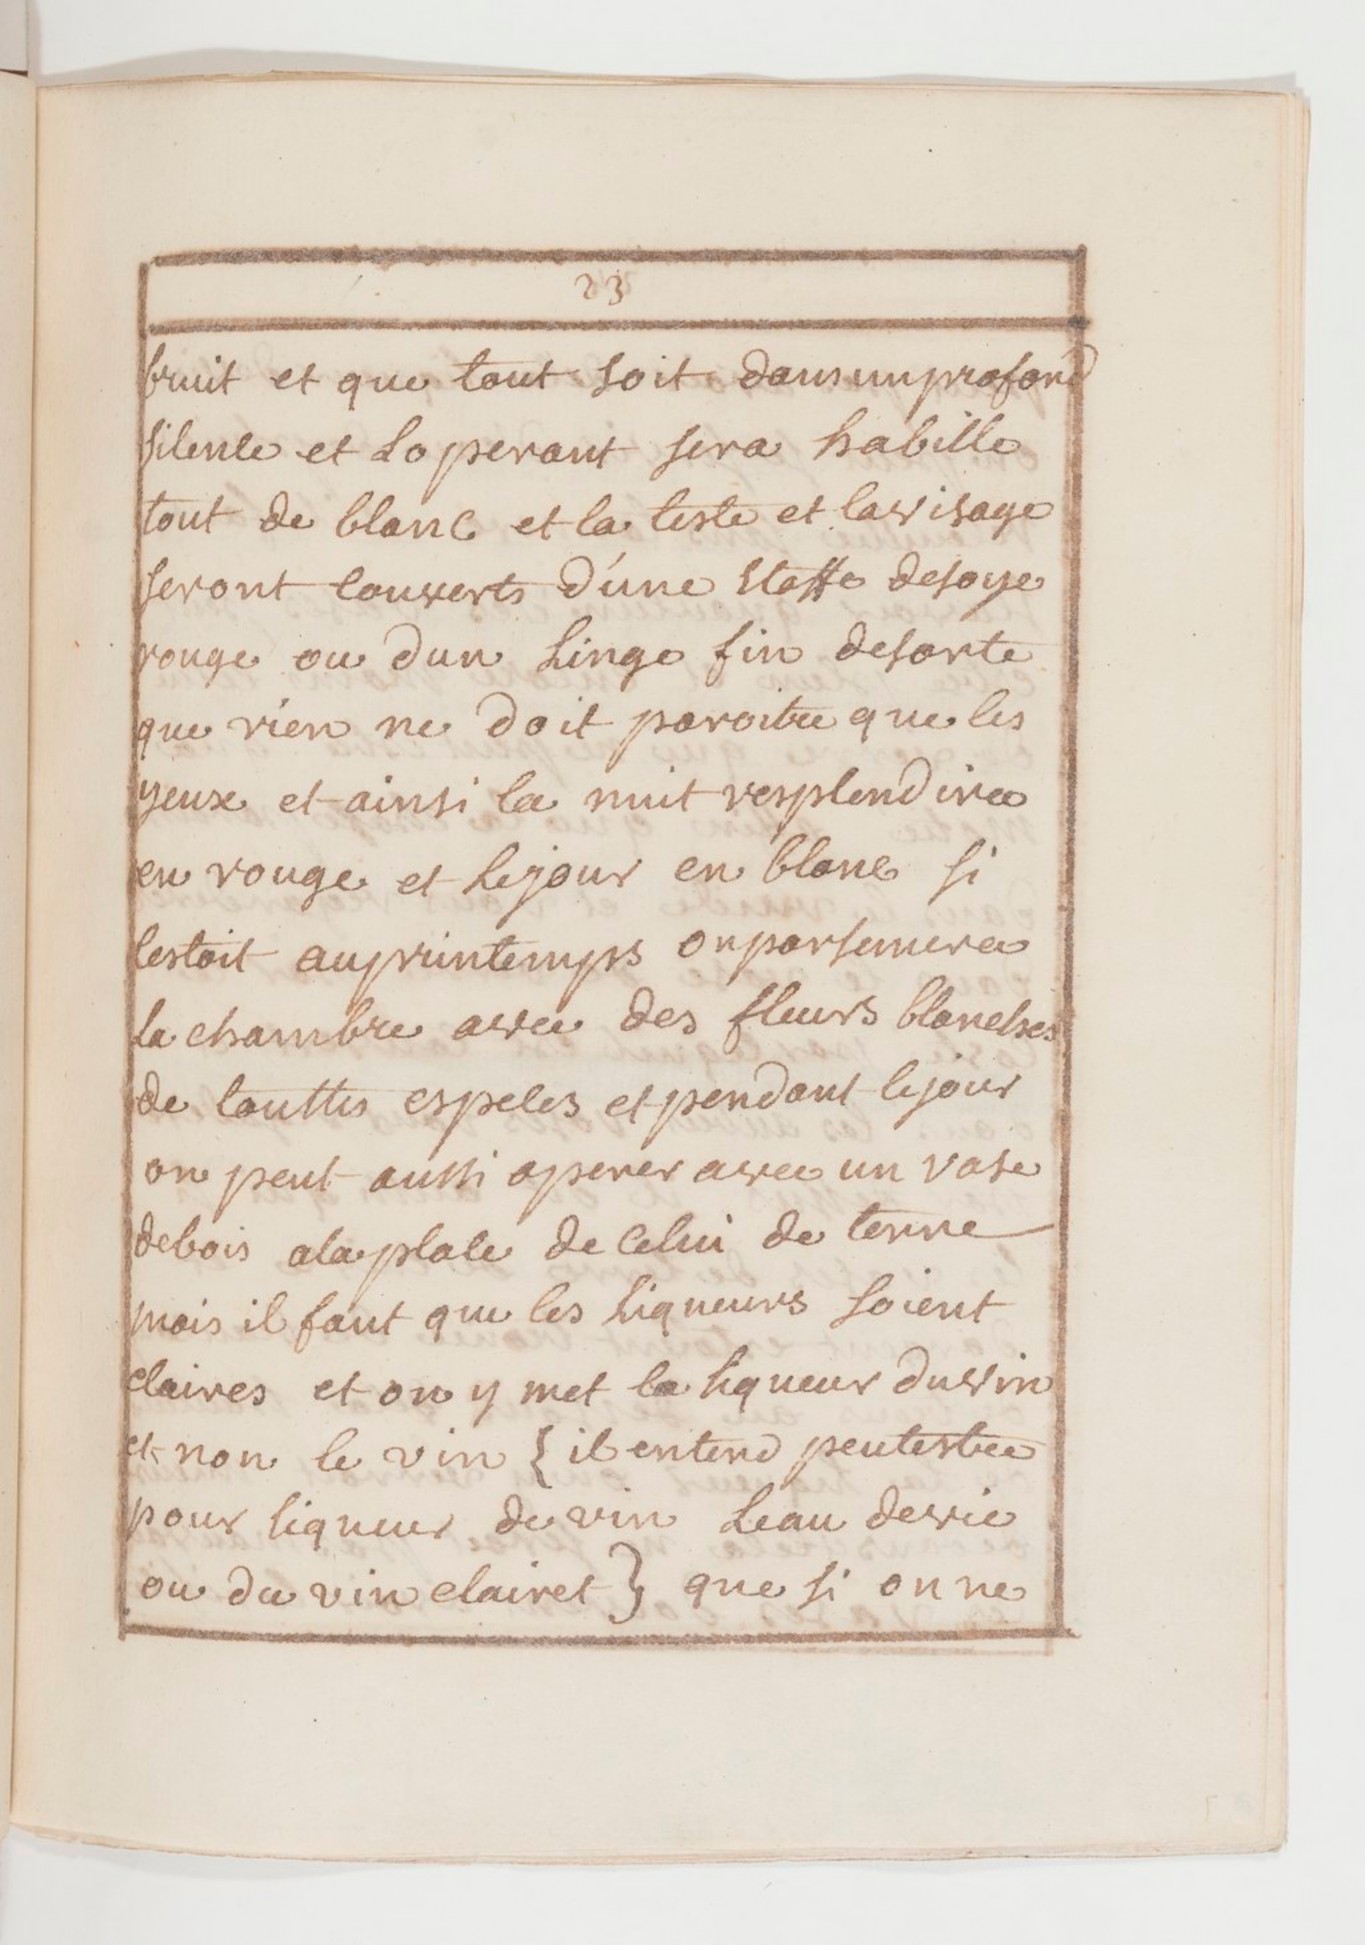 23
bruit et que tout soit dans un profond
silence et Loperant sera habille
tout de blanc et la teste et la visage
seront couverts d'une staffe de soye
rouge ou dun Linge fin desorte
que rien ne doit paroitre que les
yeux et ainsi la nuit resplendira
en rouge et Lejour en blanc si
cestoit au printemps on parsemera
La chambre avec des fleurs blanches
de touttes especes et pendant le jour
on peut aussi operer avec un vase
debois ala place de Celui de terre
mais il faut que les Liqueurs soient
claires et on y met la liqueur du vin
et non le vin { il entend peutestre
pour liqueur de vin Leau devie
ou du vin clairet } que si on ne